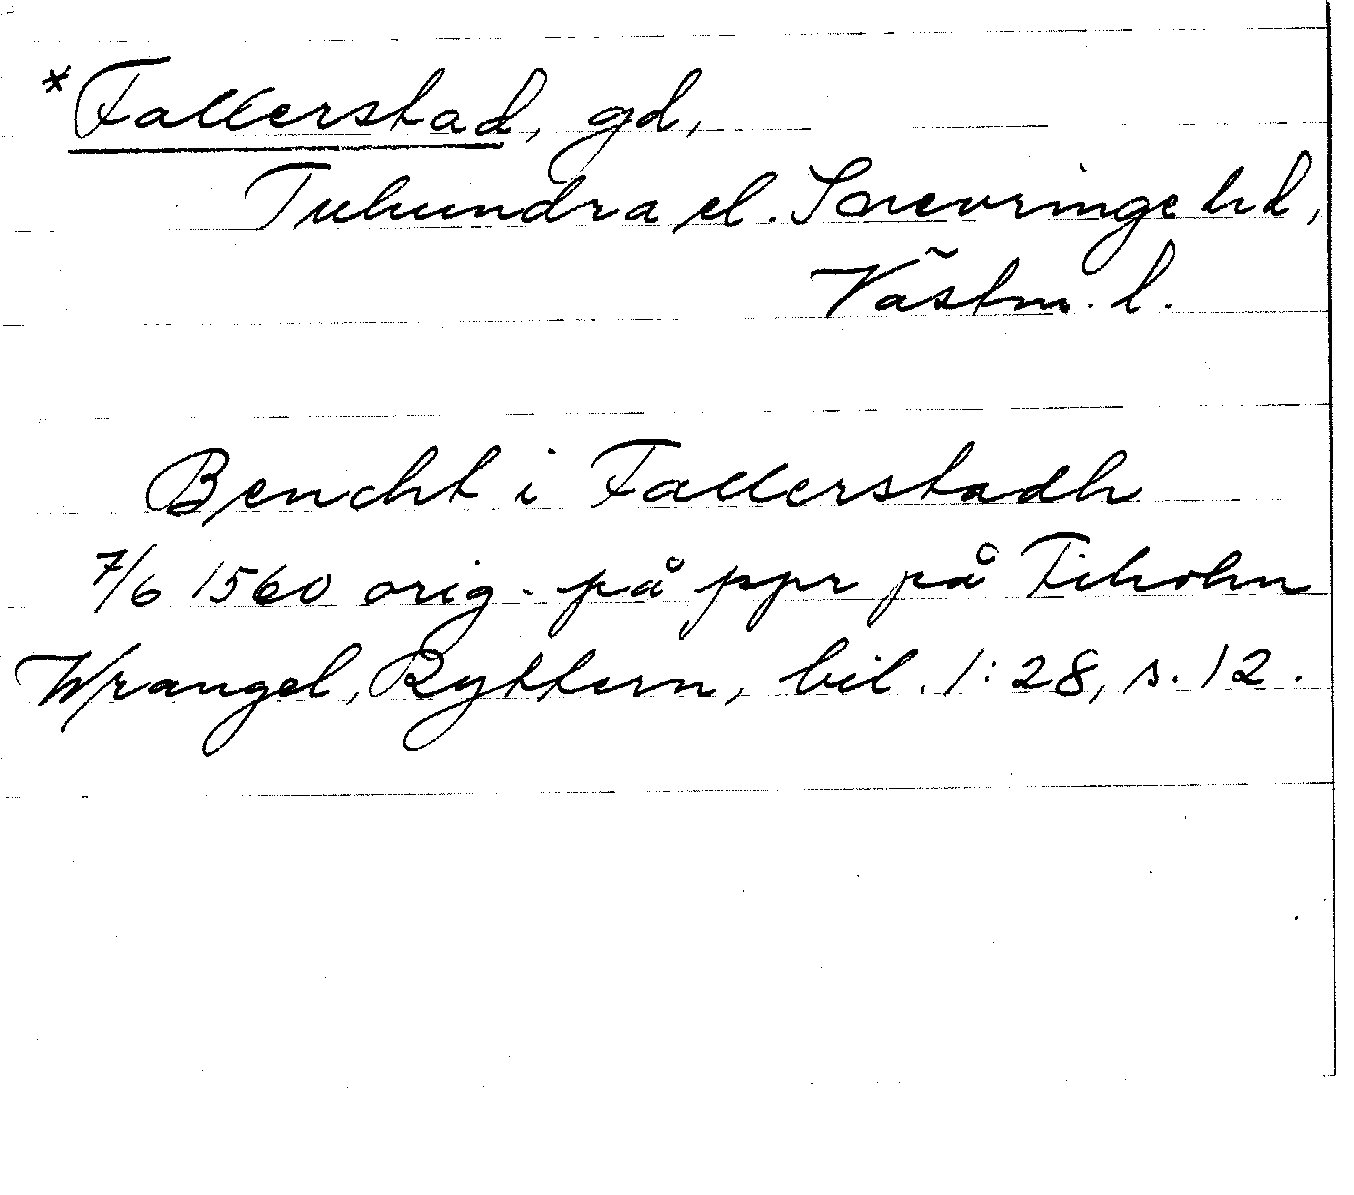 *Fallerstad, gd,
Tuhundra el. Snevringe hd,
Västm. l.
Bencht i Fallerstadh
7/6 1560 orig. på ppr på Fiholm
Wrangel, Ryttern, bil. 1:28, s. 12.